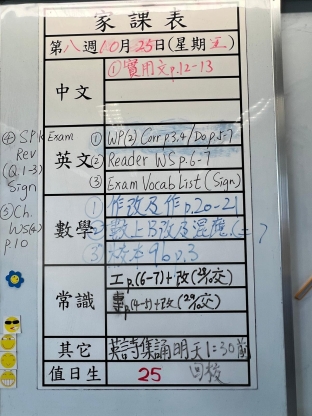 家課表
第八週10月25日(星期五)
中文
①實用文p.12-13
英文
① WP(2) Corr p.3,4/Do p.5-7
② Reader WS p.6-7
③ Exam Vocab List (Sign)
④ SPK Exam
Rev
(Q.1-3)
Sign
⑤ Ch.
WS(4)
p.10
數學
① 作改及作p.20-21
② 數上B改及
③ p.3
常識
工p.(6-7)+改(28/10交)
p.(4-5)+改(29/10交)
其它
英詩集誦明天1:30前
回校
值日生
25